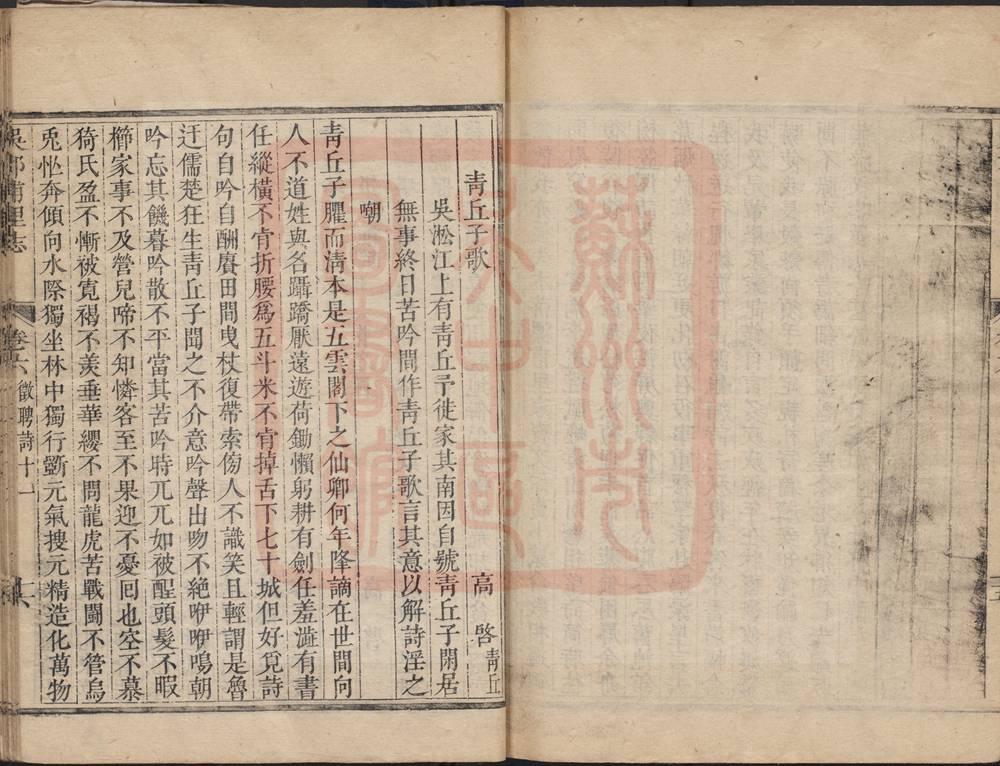 青丘子歌
高啓青丘
吳淞江上有青丘予徙家其南因自號青丘子閑居
無事終日苦吟間作青丘子歌言其意以解詩淫之
嘲
青丘子臞而清本是五雲閣下之仙卿何年降謫在世間向
人不道姓與名躡蹻厭遠遊荷鋤懶躬耕有劍任羞澁有書
任縱橫不肯折腰爲五斗米不肯掉舌下七十城但好覓詩
句自吟自酬賡田間曳杖復帶索傍人不識笑且輕謂是魯
迂儒楚狂生青丘子聞之不介意吟聲出吻不絕咿咿鳴朝
吟忘其饑暮吟散不平當其苦吟時兀兀如被酲頭髮不暇
櫛家事不及營兒啼不知憐客至不果迎不憂囘也空不慕
猗氏盈不慚被寬褐不羨垂華纓不問龍虎苦戰鬬不管烏
兎忙奔傾向水際獨坐林中獨行斵元氣搜元精造化萬物
吳郡甫里志
卷六
徵聘詩十一
蘇州市吳中區圖書館